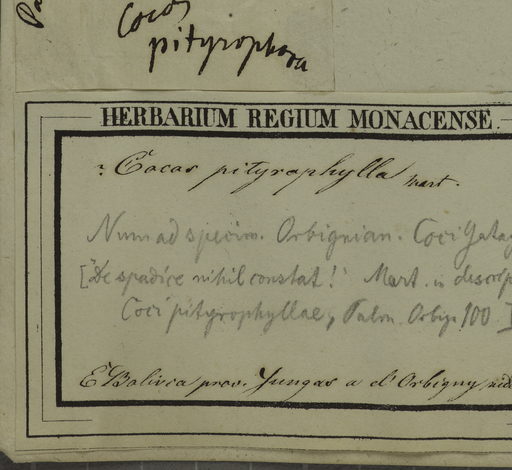 Pa
Cocos
pityrophora
HERBARIUM REGIUM MONACENSE.
? Cocos pityrophylla Mart.
Num ad specim. Orbignian. Coci Yatay
["De spadice nihil constat!" Mart. in descrip
Coci pityrophyllae, Palm. Orbign. 100.]
E Bolivia prov. Yungas a d'Orbigny